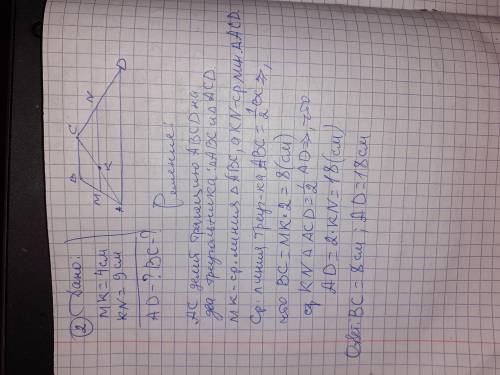 ② Дано:
MK = 4см
KN = 9см
AD = ? BC = ?
B
C
M
K
N
A
D
Решение:
AC делит трапецию ABCD на
два треугольника: △ABC и △ACD
MK - ср. линия △ABC, а KN - ср. лин. △ACD.
Ср. линия треуг-ка ABC = 1/2 BC ⇒,
что BC = MK · 2 = 8 (см)
ср KN △ACD = 1/2 AD ⇒, что
AD = 2 · KN = 18 (см)
Ответ: BC = 8 см; AD = 18 см